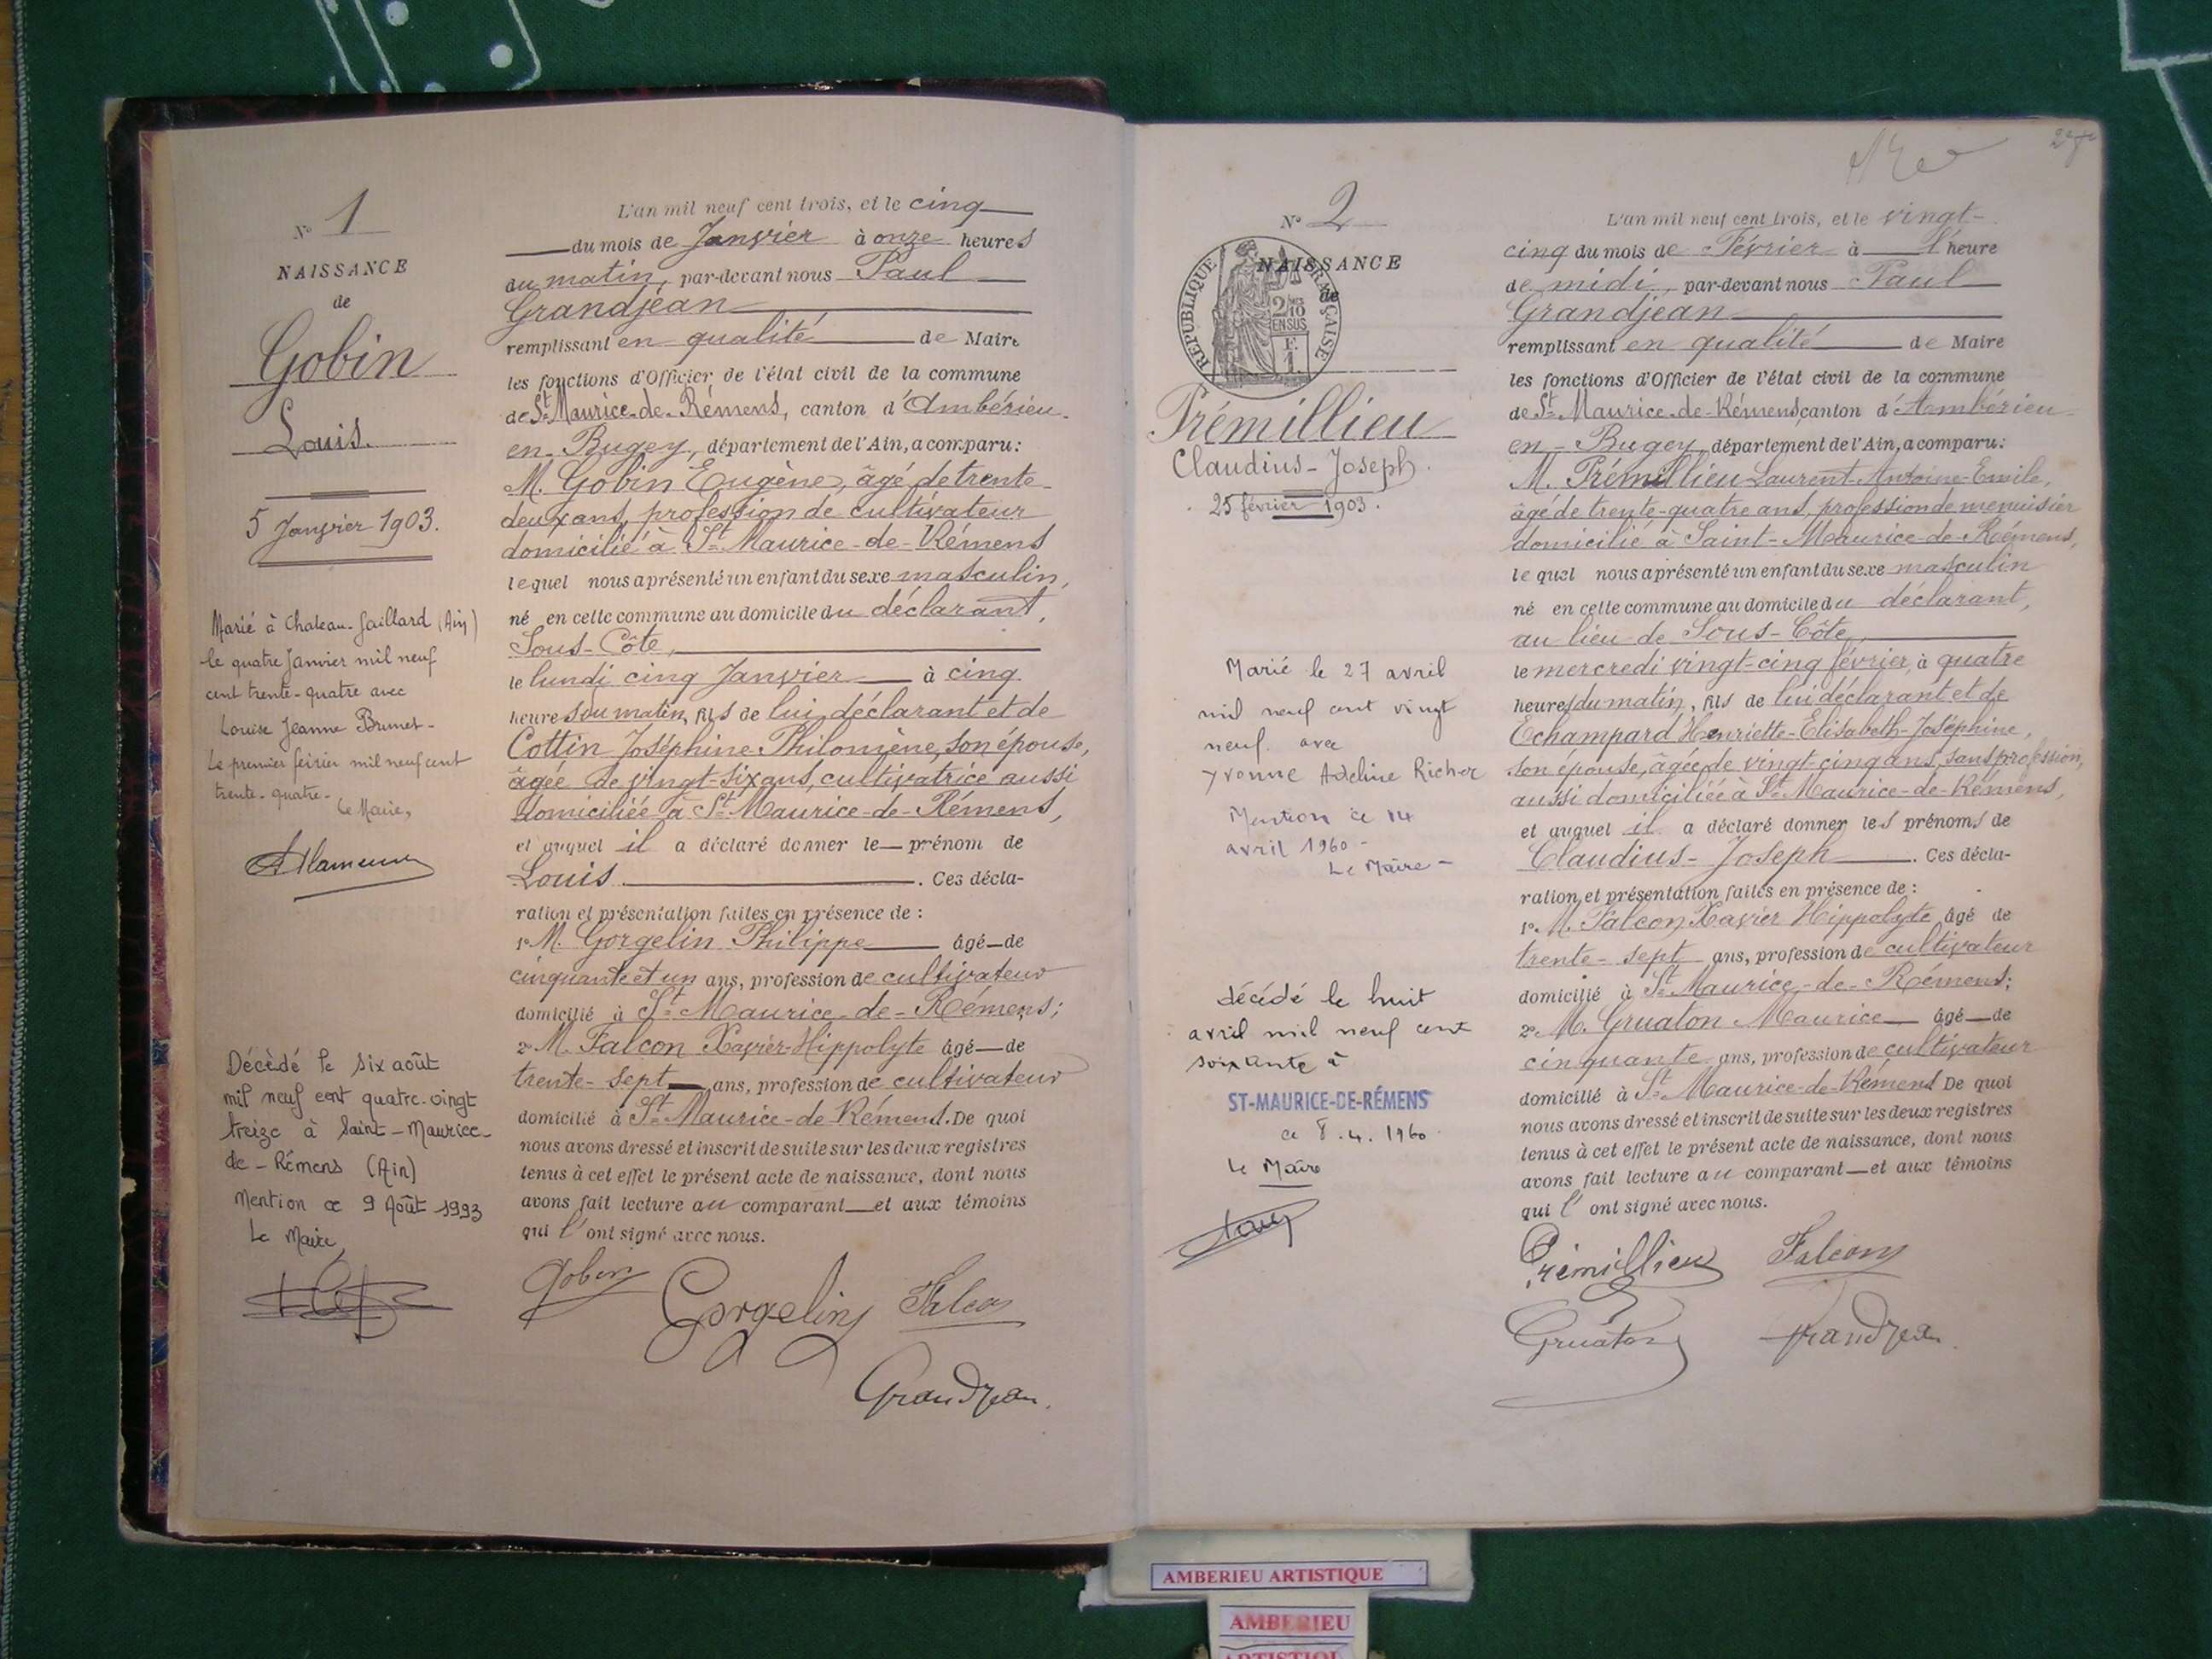 N° 1
NAISSANCE
de
Gobin
Louis.
5 Janvier 1903.
Marié à Chateau-Gaillard (Ain)
le quatre Janvier mil neuf
cent trente-quatre avec
Louise Jeanne Brunet-
Le premier février mil neuf cent
trente-quatre-
Le Maire,
Décédé le six août
mil neuf cent quatre-vingt
treize à Saint-Maurice-
de-Rémens (Ain)
Mention ce 9 Août 1993
Le Maire,
L'an mil neuf cent trois, et le cinq
du mois de Janvier à onze heures
du matin, par-devant nous Paul
Grandjean
remplissant en qualité de Maire
les fonctions d'Officier de l'état civil de la commune
de St-Maurice-de-Rémens, canton d'Ambérieu-
en-Bugey, département de l'Ain, a comparu:
M. Gobin Eugène, âgé de trente-
deux ans, profession de cultivateur
domicilié à St-Maurice-de-Rémens
lequel nous a présenté un enfant du sexe masculin,
né en cette commune au domicile du déclarant,
Sous-Côte,
le lundi cinq Janvier à cinq
heures du matin, fils de lui déclarant et de
Cottin Joséphine Philomène, son épouse,
âgée de vingt-six ans, cultivatrice aussi
domiciliée à St-Maurice-de-Rémens,
et auquel il a déclaré donner le prénom de
Louis. Ces décla-
ration et présentation faites en présence de :
1° M. Gorgelin Philippe âgé de
cinquante et un ans, profession de cultivateur
domicilié à St-Maurice-de-Rémens;
2° M. Falcon Xavier-Hippolyte âgé de
trente-sept ans, profession de cultivateur
domicilié à St-Maurice-de-Rémens. De quoi
nous avons dressé et inscrit de suite sur les deux registres
tenus à cet effet le présent acte de naissance, dont nous
avons fait lecture au comparant et aux témoins
qui l'ont signé avec nous.
Gobin Gorgelin Falcon
Grandjean.
N° 2
NAISSANCE
de
RÉPUBLIQUE FRANÇAISE
2/10
EN SUS
F.
1.
Prémillieu
Claudius-Joseph.
25 février 1903.
Marié le 27 avril
mil neuf cent vingt
neuf avec
Yvonne Adeline Richer
Mention ce 14
avril 1960-
Le Maire-
décédé le huit
avril mil neuf cent
soixante à
ST-MAURICE-DE-RÉMENS
ce 8.4.1960
Le Maire
L'an mil neuf cent trois, et le vingt-
cinq du mois de Février à l'heure
de midi, par-devant nous Paul
Grandjean
remplissant en qualité de Maire
les fonctions d'Officier de l'état civil de la commune
de St-Maurice-de-Rémens, canton d'Ambérieu-
en-Bugey, département de l'Ain, a comparu:
M. Prémillieu Laurent-Antoine-Emile,
âgé de trente-quatre ans, profession de menuisier
domicilié à Saint-Maurice-de-Rémens,
lequel nous a présenté un enfant du sexe masculin
né en cette commune au domicile du déclarant,
au lieu de Sous-Côte,
le mercredi vingt-cinq février, à quatre
heures du matin, fils de lui déclarant et de
Echampard Henriette-Elisabeth-Joséphine,
son épouse, âgée de vingt-cinq ans, sans profession,
aussi domiciliée à St-Maurice-de-Rémens,
et auquel il a déclaré donner les prénoms de
Claudius-Joseph. Ces décla-
ration et présentation faites en présence de :
1° M. Falcon Xavier Hippolyte âgé de
trente-sept ans, profession de cultivateur
domicilié à St-Maurice-de-Rémens;
2° M. Gruaton Maurice âgé de
cinquante ans, profession de cultivateur
domicilié à St-Maurice-de-Rémens De quoi
nous avons dressé et inscrit de suite sur les deux registres
tenus à cet effet le présent acte de naissance, dont nous
avons fait lecture au comparant et aux témoins
qui l'ont signé avec nous.
Prémillieu Falcon
Gruaton Grandjean
AMBERIEU ARTISTIQUE
AMBERIEU
ARTISTIQUE